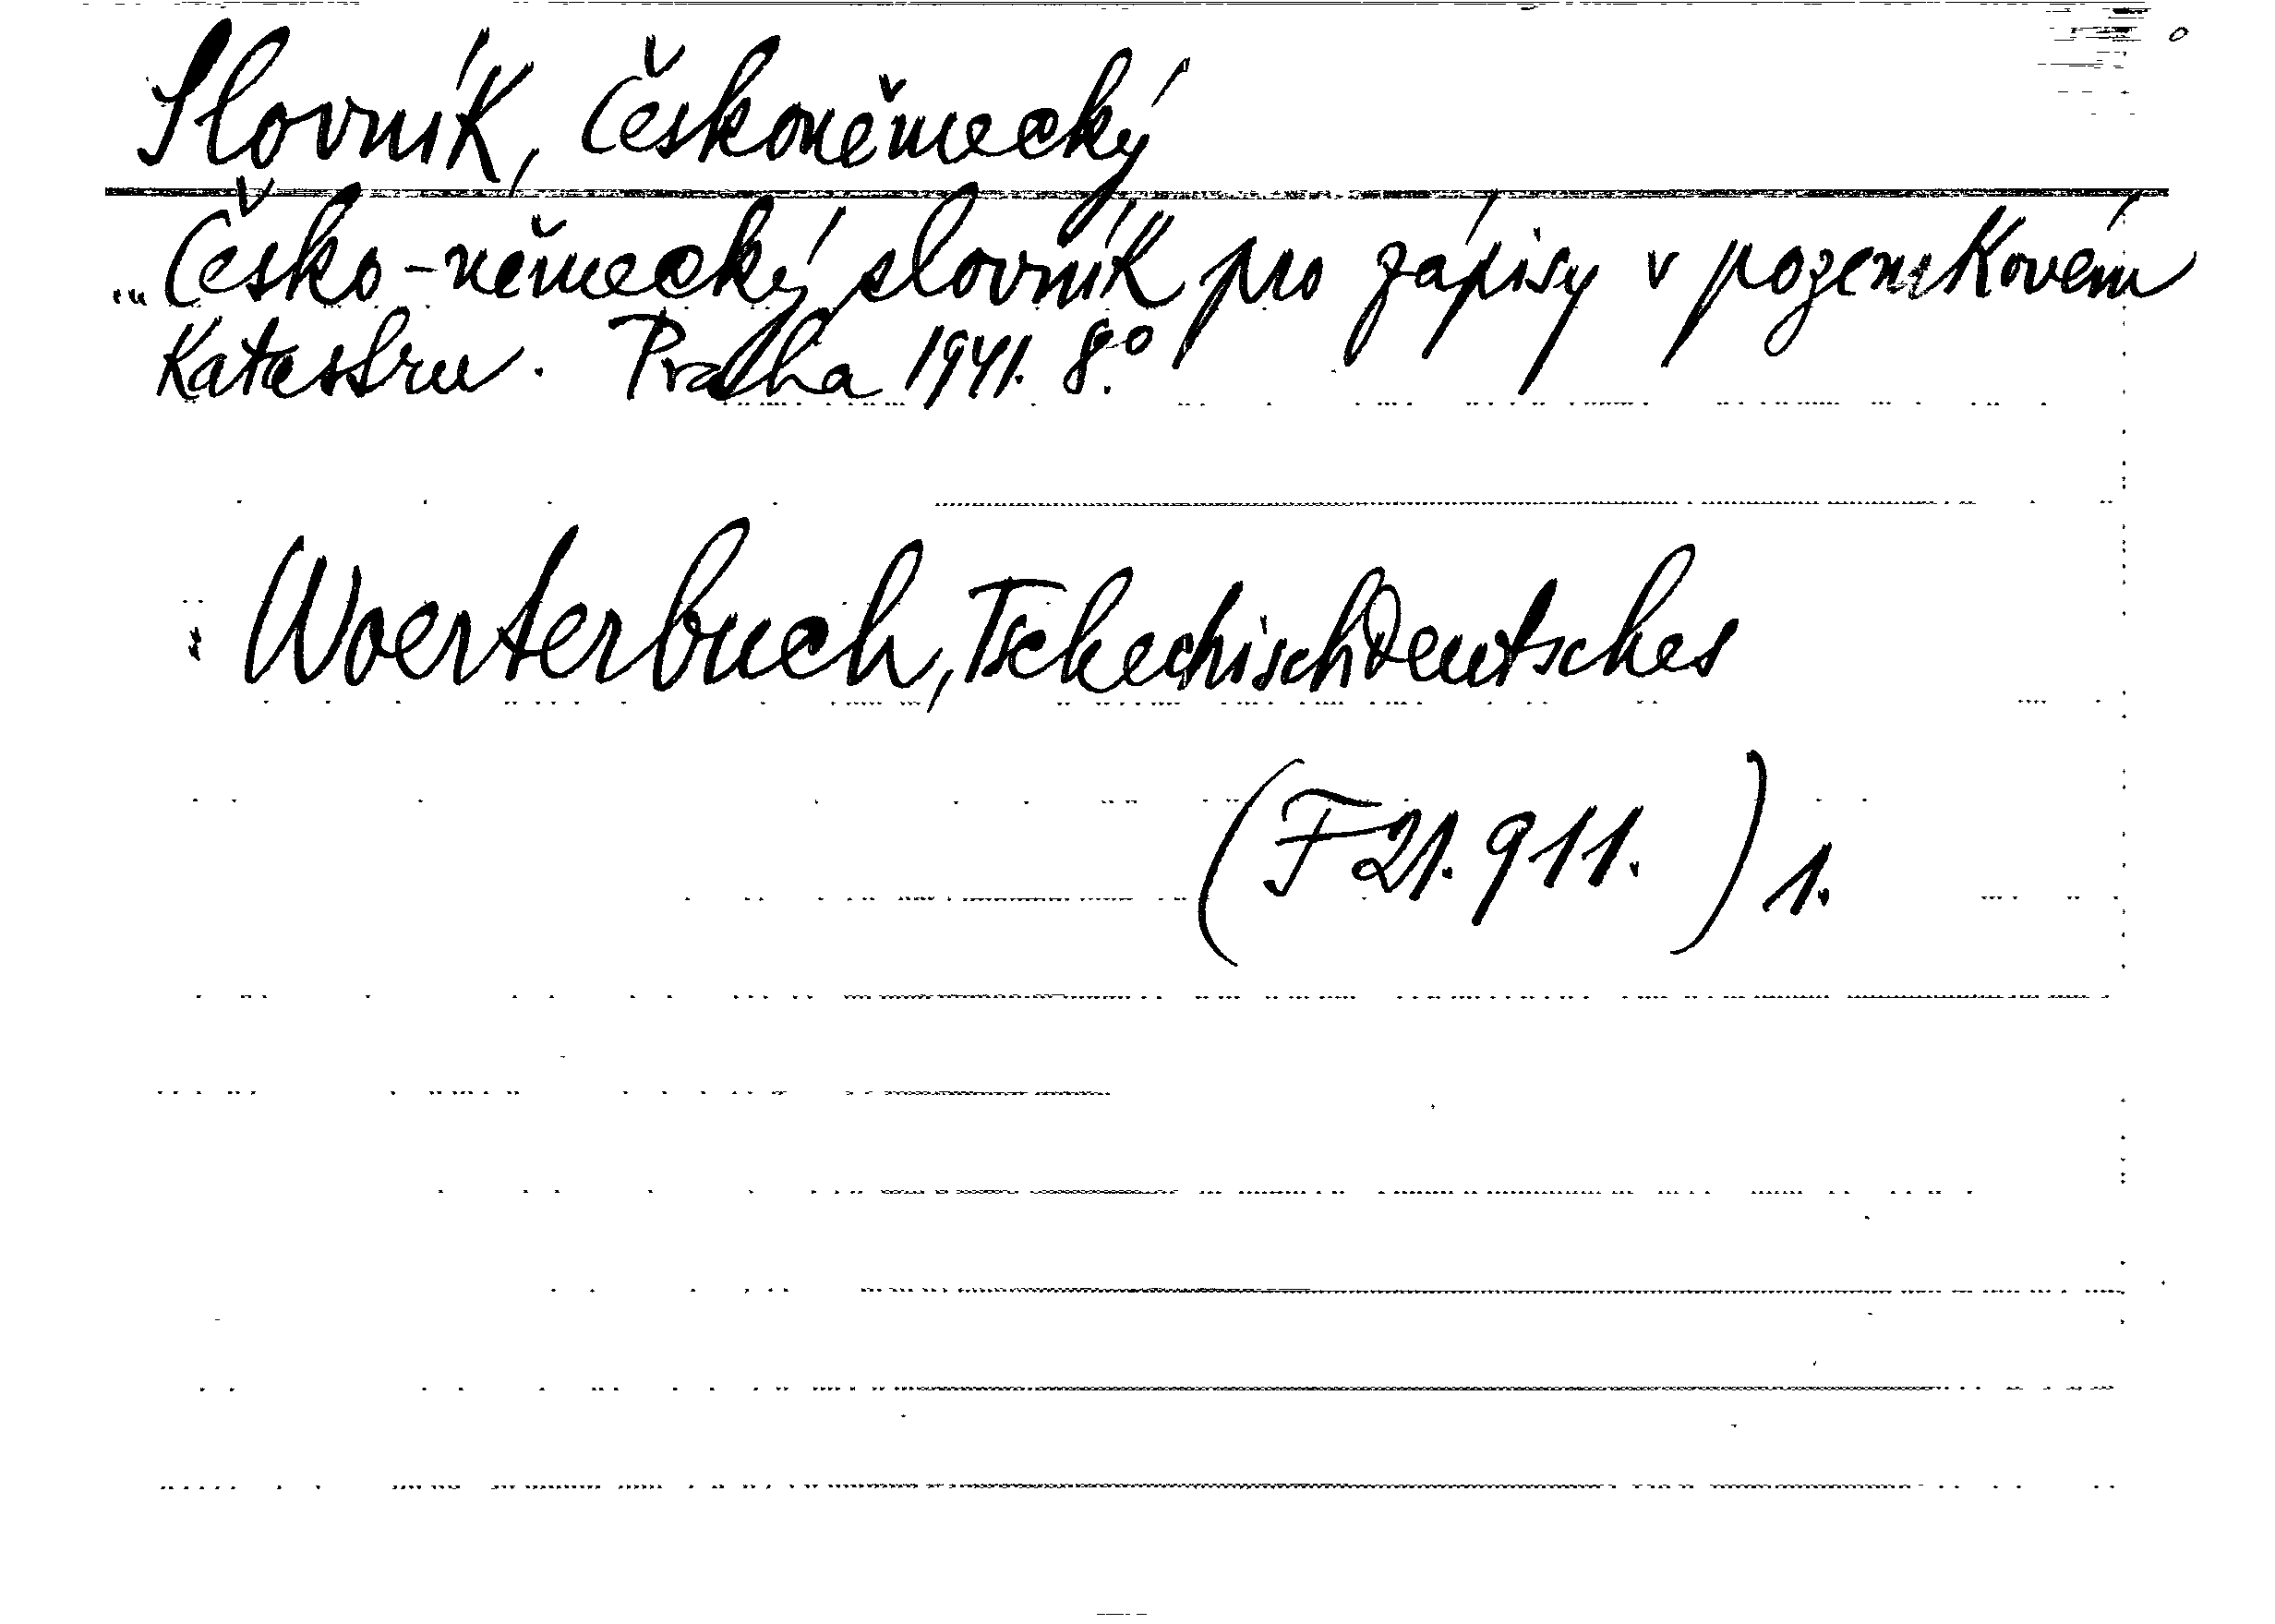 Slovník, Českoněmecký
„Česko-německý slovník pro zápisy v pozemkovém
Katastru. Praha 1941. 8.°
Woerterbuch, TschechischDeutsches
(F21.911. ) 1.